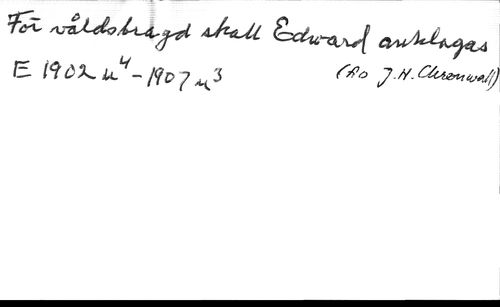 För våldsbragd skall Edward anklagas
E 1902 u⁴ - 1907 u³ (Ao J.H. Chronwall)